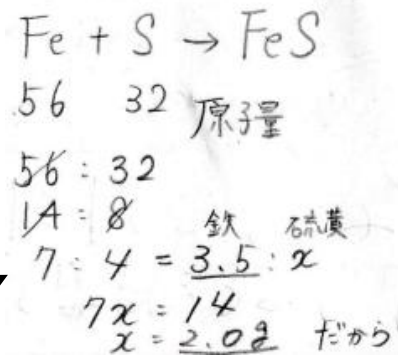 Fe + S → FeS
56 32 原子量
56 : 32
14 : 8
鉄 硫黄
7 : 4 = 3.5 : x
7x = 14
x = 2.0g だから